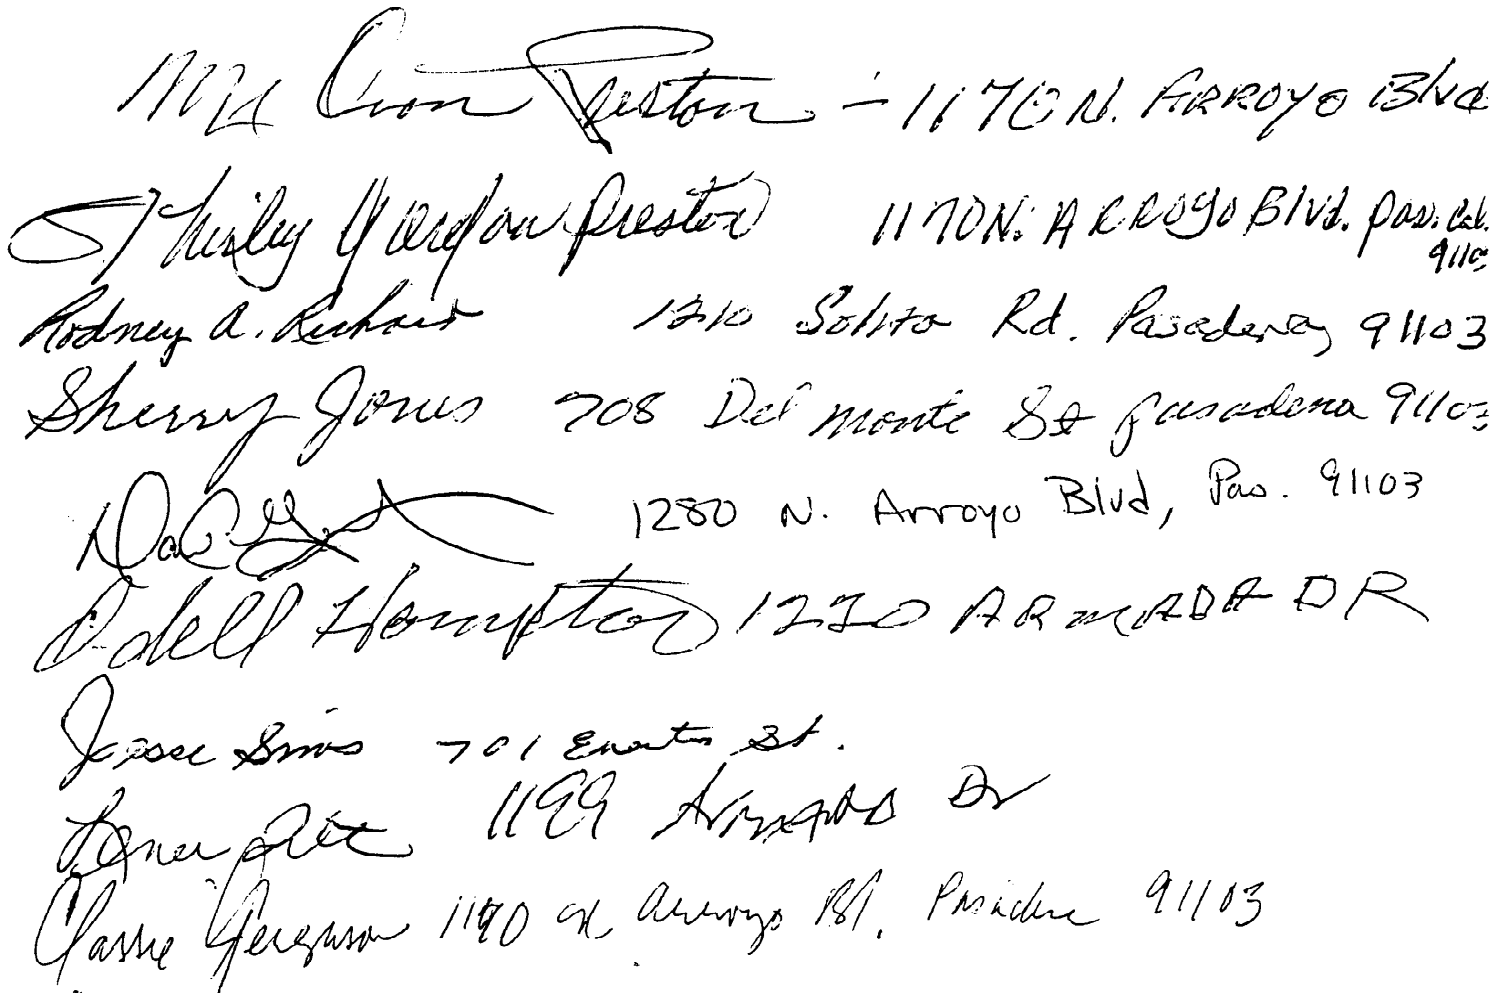 Preston - 1170 N. ARROYO Blvd
Shirley Preston 1170 N. ARROYO Blvd. Pas. Cal.
9110
Rodney A. Richard 1210 Solita Rd. Pasadena, 91103
Sherry Jones 708 Del monte St pasadena 91103
1280 N. Arroyo Blvd, Pas. 91103
Odell Hampton 1220 ARMADA DR
Jesse Sims 701 St.
1199 Armada Dr
Classie Ferguson 1190 N Arroyo Bl. Pasadena 91103